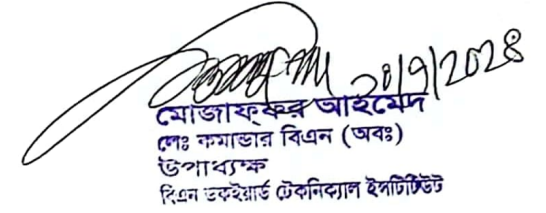 ২০/৭/২০২৪
মোজাফ্ফর আহমেদ
লেঃ কমান্ডার বিএন (অবঃ)
উপাধ্যক্ষ
বিএন ডকইয়ার্ড টেকনিক্যাল ইনস্টিটিউট